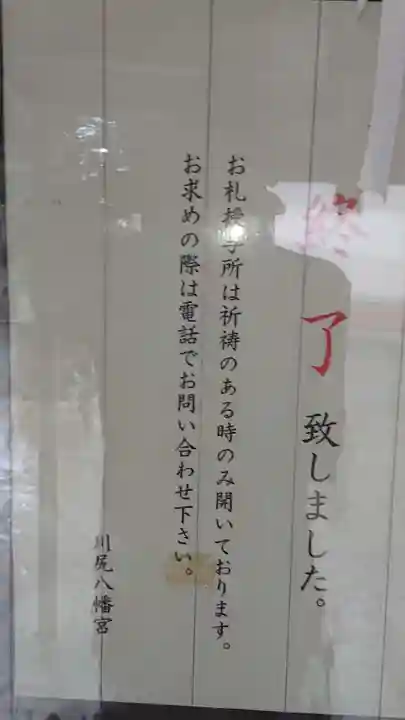 終了致しました。
お札授与所は祈祷のある時のみ開いております。
お求めの際は電話でお問い合わせ下さい。
川尻八幡宮